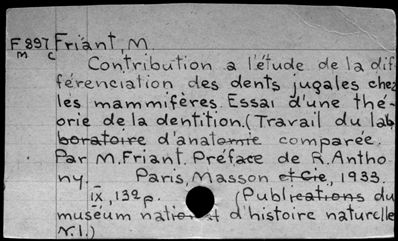 F 897 Friant, M.
M C
Contribution a l'étude de la dif
férenciation des dents jugales chez
les mammifères. Essai d'une thé-
orie de la dentition. (Travail du lab
boratoire d'anatomie comparée.
Par M. Friant. Préface de R. Antho
ny. Paris, Masson et Cie, 1933.
ix, 132 p. (Publications du
muséum national d'histoire naturelle
N. 1.)